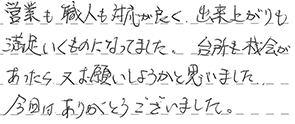 営業も職人も対応が良く、出来上がりも
満足いくものになってました。台所も機会が
あったら又お願いしようかと思いました。
今回はありがとうございました。